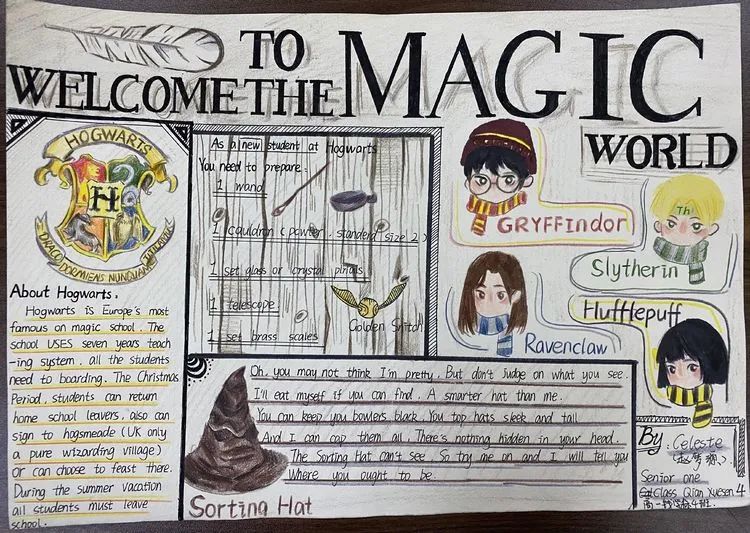 WELCOME TO THE MAGIC WORLD
HOGWARTS
H
DRACO DORMIENS NUNQUAM
About Hogwarts.
Hogwarts is Europe's most
famous on magic school. The
school USES seven years teach
-ing system. all the students
need to boarding. The Christmas
Period, students can return
home school leavers, also can
sign to hogsmeade (UK only
a pure witzarding village)
or can choose to feast there.
During the summer vacation
all students must leave
school.
As a new student at Hogwarts
You need to prepare:
1 wand
1 cauldron (powter, standerd size 2)
1 set glass or crystal pinals
1 telescope
1 set brass scales
Golden Snitch
GRYFFIndor
Slytherin
Ravenclaw
Hufflepuff
Oh, you may not think I'm pretty. But don't judge on what you see.
I'll eat myself if you can find. A smarter hat than me.
You can keep you bowlers black. You top hats sleek and tall
And I can cap them all. There's nothing hidden in your head.
The Sorting Hat can't see. So try me on and I will tell you
Where you ought to be.
Sorting Hat
By: Celeste
Senior one
Class Qian Xuesen 4